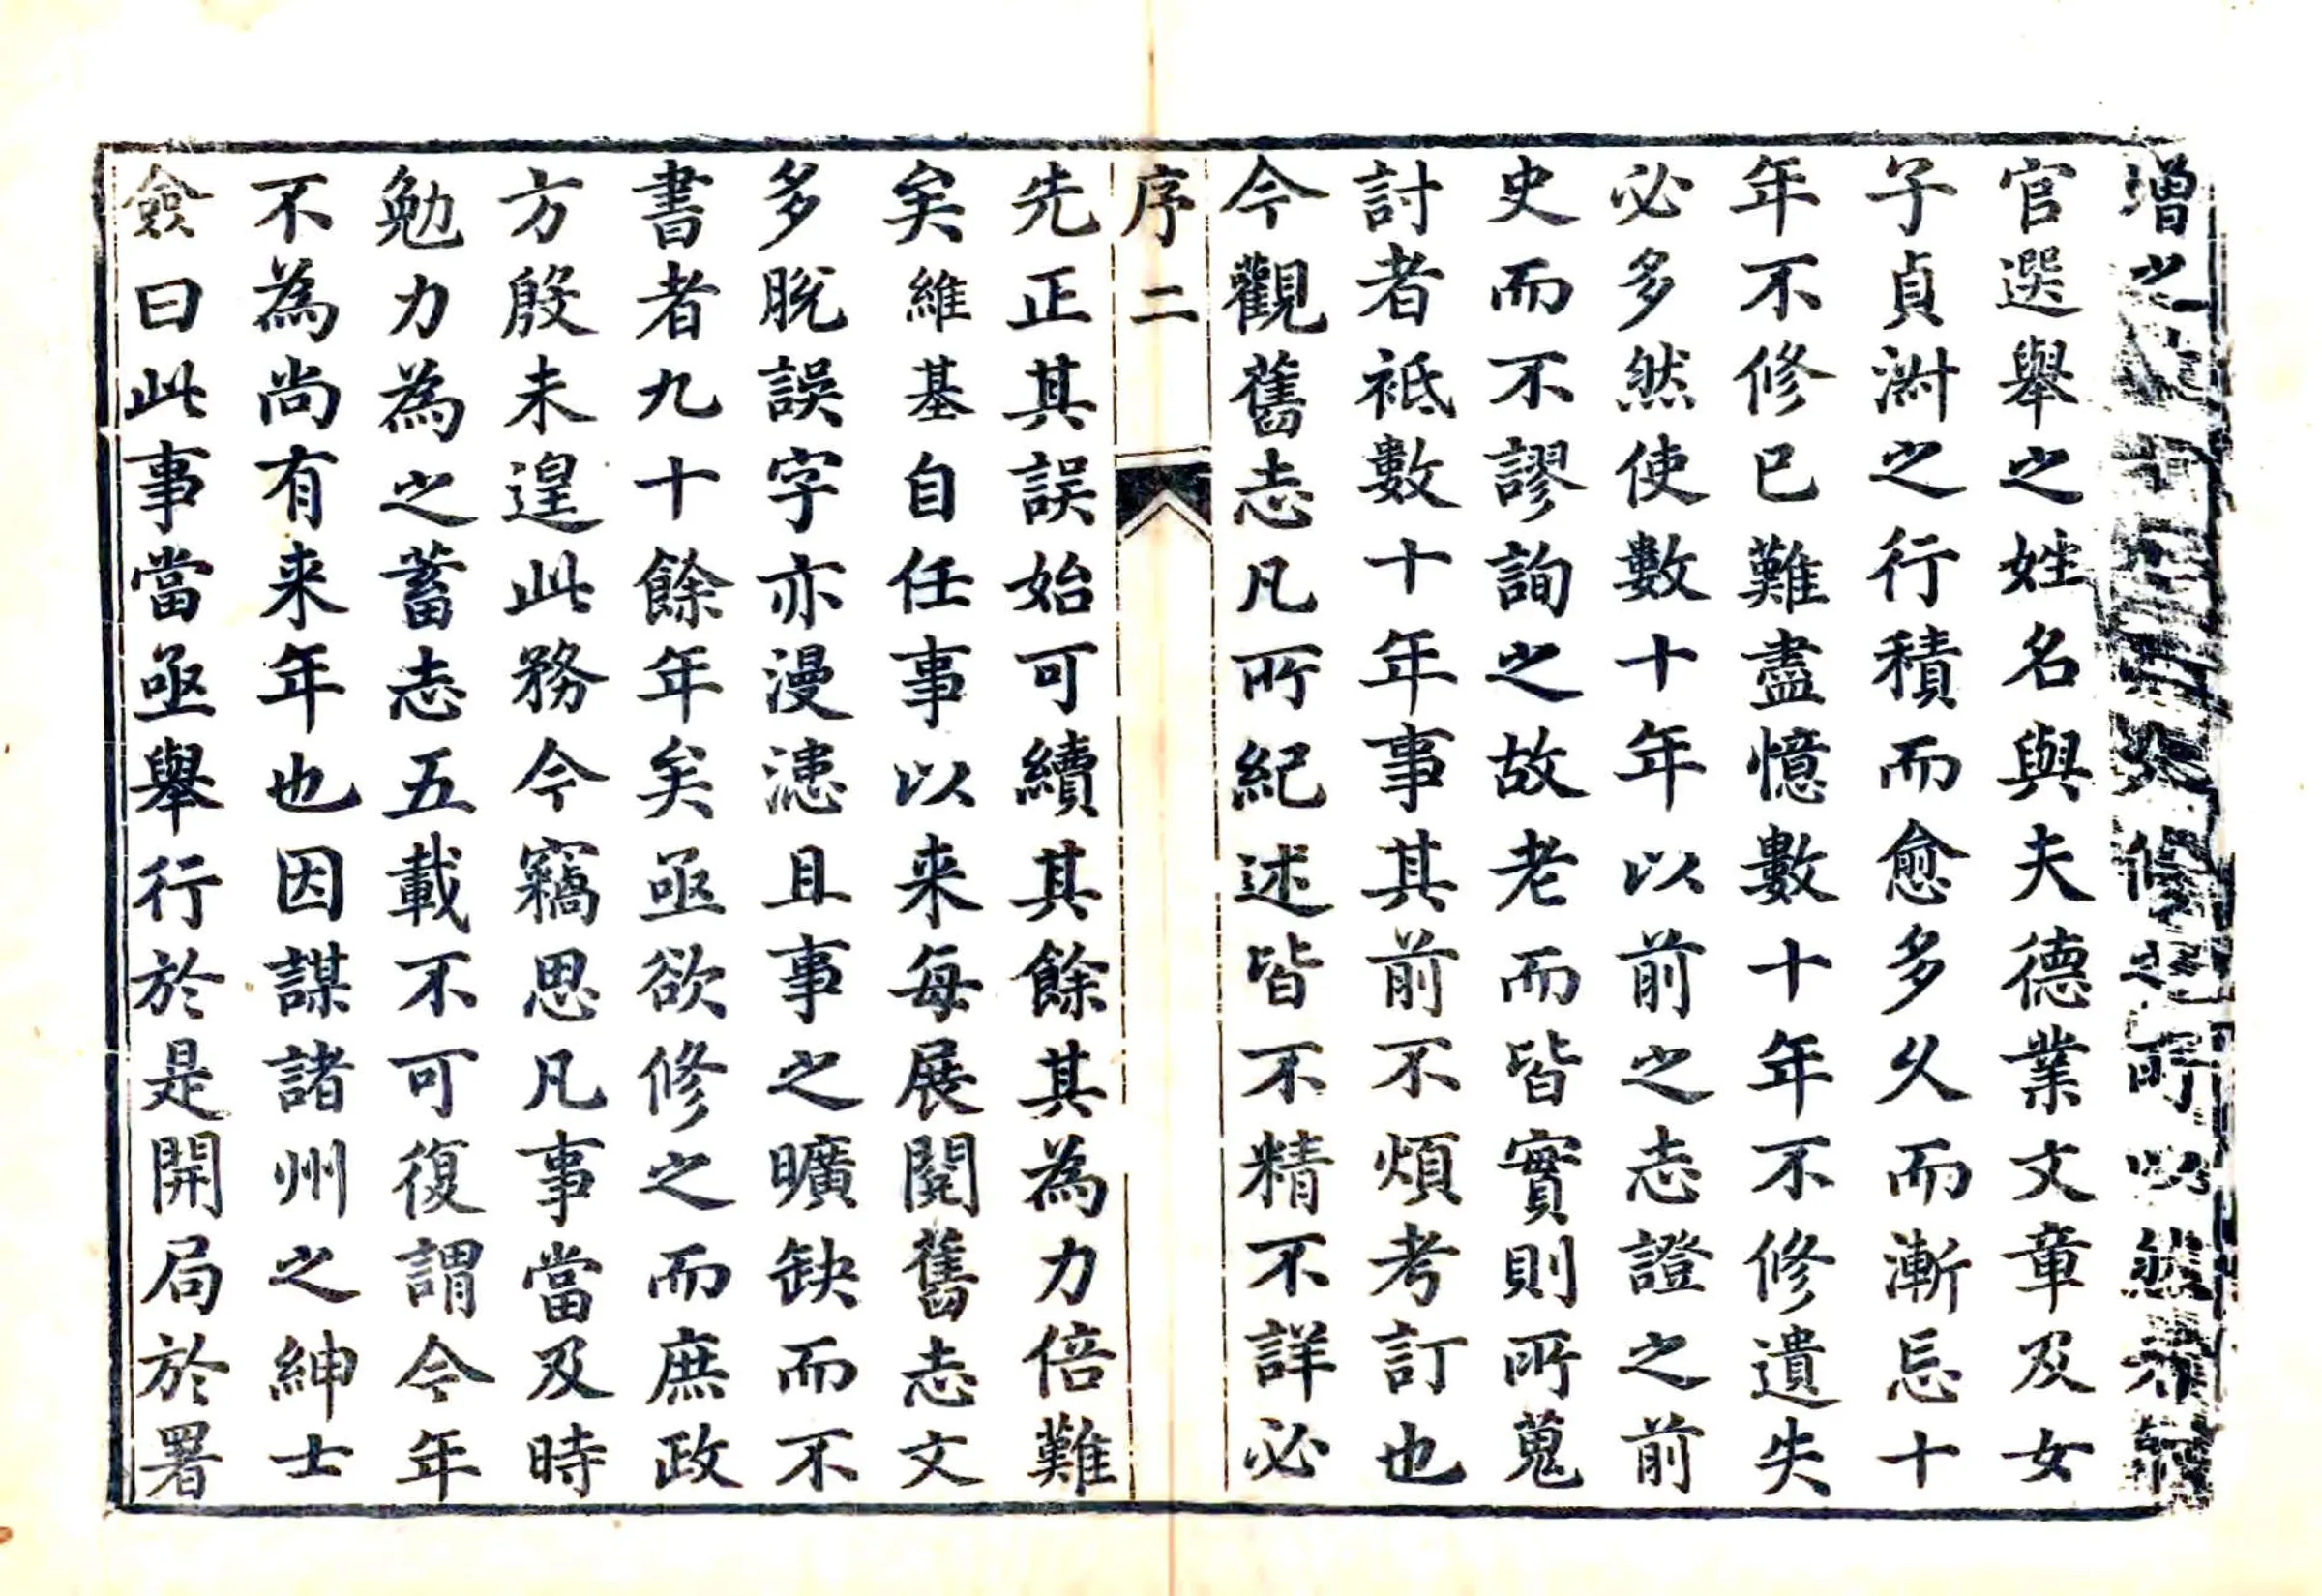 增之
修之所以然
官選舉之姓名與夫德業文章及女
子貞淑之行積而愈多久而漸忘十
年不修已難盡憶數十年不修遺失
必多然使數十年以前之志證之前
史而不謬詢之故老而皆實則所蒐
討者袛數十年事其前不煩考訂也
今觀舊志凡所紀述皆不精不詳必
序二
先正其誤始可續其餘其為力倍難
矣維基自任事以来每展閱舊志文
多脫誤字亦漫漶且事之曠缺而不
書者九十餘年矣亟欲修之而庶政
方殷未遑此務今竊思凡事當及時
勉力為之蓄志五載不可復謂今年
不為尚有来年也因謀諸州之紳士
僉曰此事當亟舉行於是開局於署